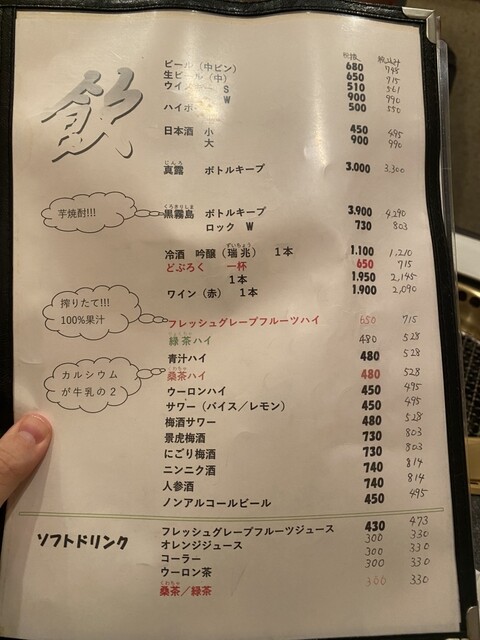 飲
税抜 税込み
ビール（中ビン） 680 748
生ビール（中） 650 715
ウイスキー S 510 561
W 900 990
ハイボール 500 550
日本酒 小 450 495
大 900 990
じんろ
真露 ボトルキープ 3.000 3.300
芋焼酎!!!
くろきりしま
黒霧島 ボトルキープ 3.900 4.290
ロック W 730 803
ずいちょう
冷酒 吟醸（瑞兆） 1本 1.100 1,210
どぶろく 一杯 650 715
1本 1.950 2,145
ワイン（赤） 1本 1.900 2,090
搾りたて!!!
100%果汁
フレッシュグレープフルーツハイ 650 715
りょくちゃ
緑茶ハイ 480 528
青汁ハイ 480 528
カルシウム
が牛乳の2
くわちゃ
桑茶ハイ 480 528
ウーロンハイ 450 495
サワー（バイス／レモン） 450 495
梅酒サワー 480 528
景虎梅酒 730 803
にごり梅酒 730 803
ニンニク酒 740 814
人参酒 740 814
ノンアルコールビール 450 495
ソフトドリンク
フレッシュグレープフルーツジュース 430 473
オレンジジュース 300 330
コーラー 300 330
ウーロン茶 300 330
くわちゃ
桑茶／緑茶 300 330